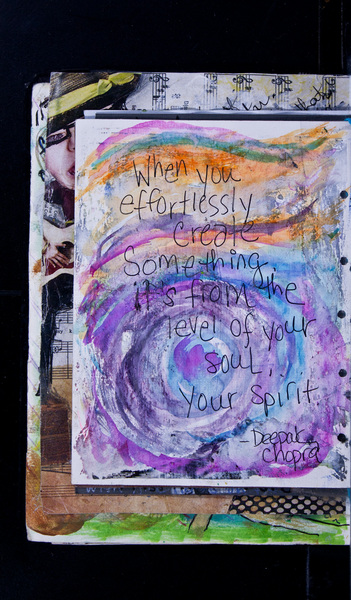 When you
effortlessly
create
Something,
it's from the
level of your
soul,
your spirit.
-Deepak
Chopra